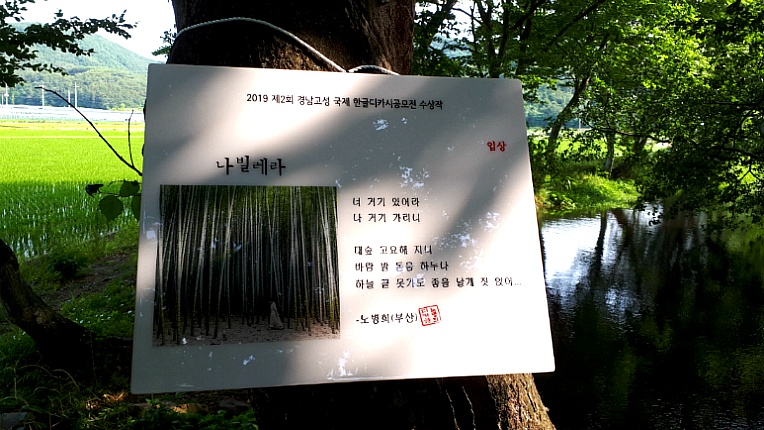 2019 제2회 경남고성 국제 한글디카시공모전 수상작
입상
나빌레라
너 거기 있어라
나 거기 가리니
대숲 고요해 지니
바람 발 돋움 하누나
하늘 끝 못가도 좋을 날개 짓 있어...
-노병희(부산)